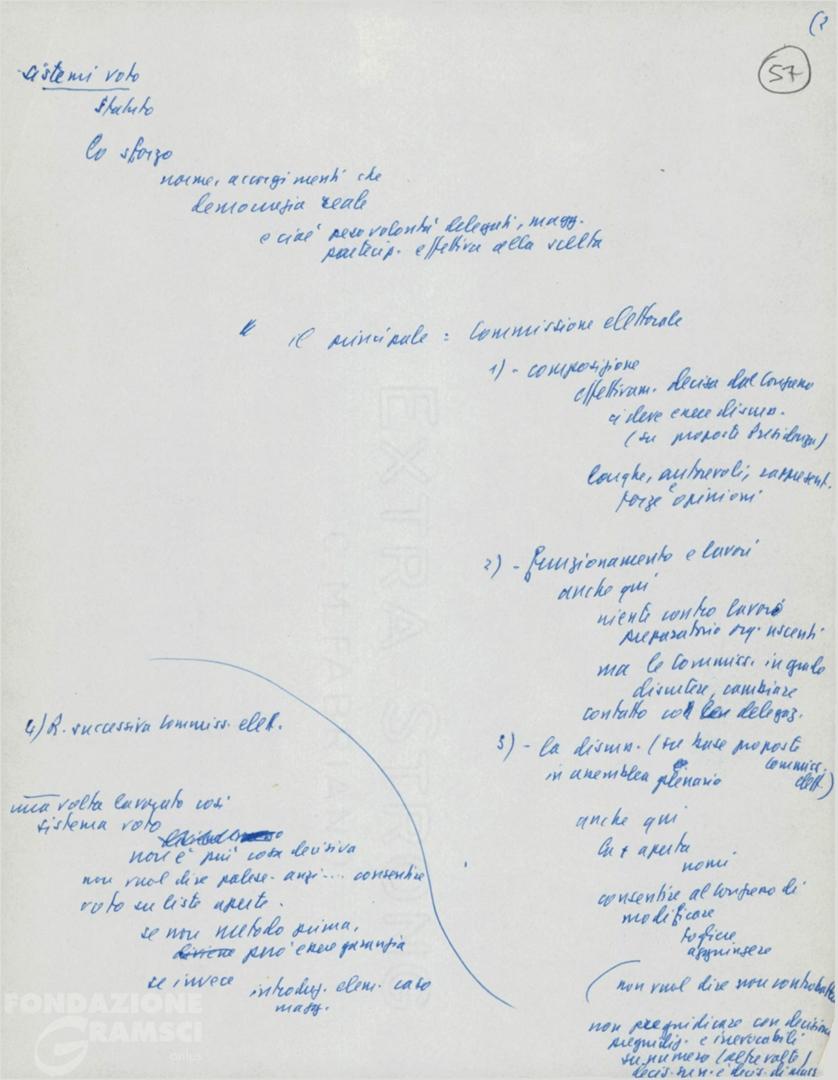 57
sistemi voto
statuto
Lo sforzo
norme, accorgimenti che
democrazia reale
e cioè peso volontà delegati, magg.
partecip. effettiva alla scelta
il principale = Commissione elettorale
1) - composizione
effettivam. decisa dal Congresso
ci deve essere discuss.
(su proposte Presidenza)
larghe, autorevoli, rappresent.
forze e opinioni
2) - funzionamento e lavori
anche qui
niente contro lavoro
preparatorio org. uscenti
ma le Commiss. in grado
discutere, cambiare
contatto con delegaz.
3) - la discuss. (su base proposte
commiss. elett.)
in assemblea plenaria
anche qui
la + aperta
nomi
consentire al Congresso di
modificare
togliere
aggiungere
(non vuol dire non controbattere
non pregiudicare con decisioni
pregiudiz. e irrevocabili
su numero (altre volte)
4) R. successiva Commiss. elett.
una volta lavorato così
sistema voto
non è più cosa decisiva
non vuol dire palese. anzi... consentire
voto su liste aperte.
se non metodo prima,
può essere garanzia
se invece introduz. elem. caso
magg.
EXTRA STRONG
C.M. FABRIANO
FONDAZIONE
GRAMSCI
onlus